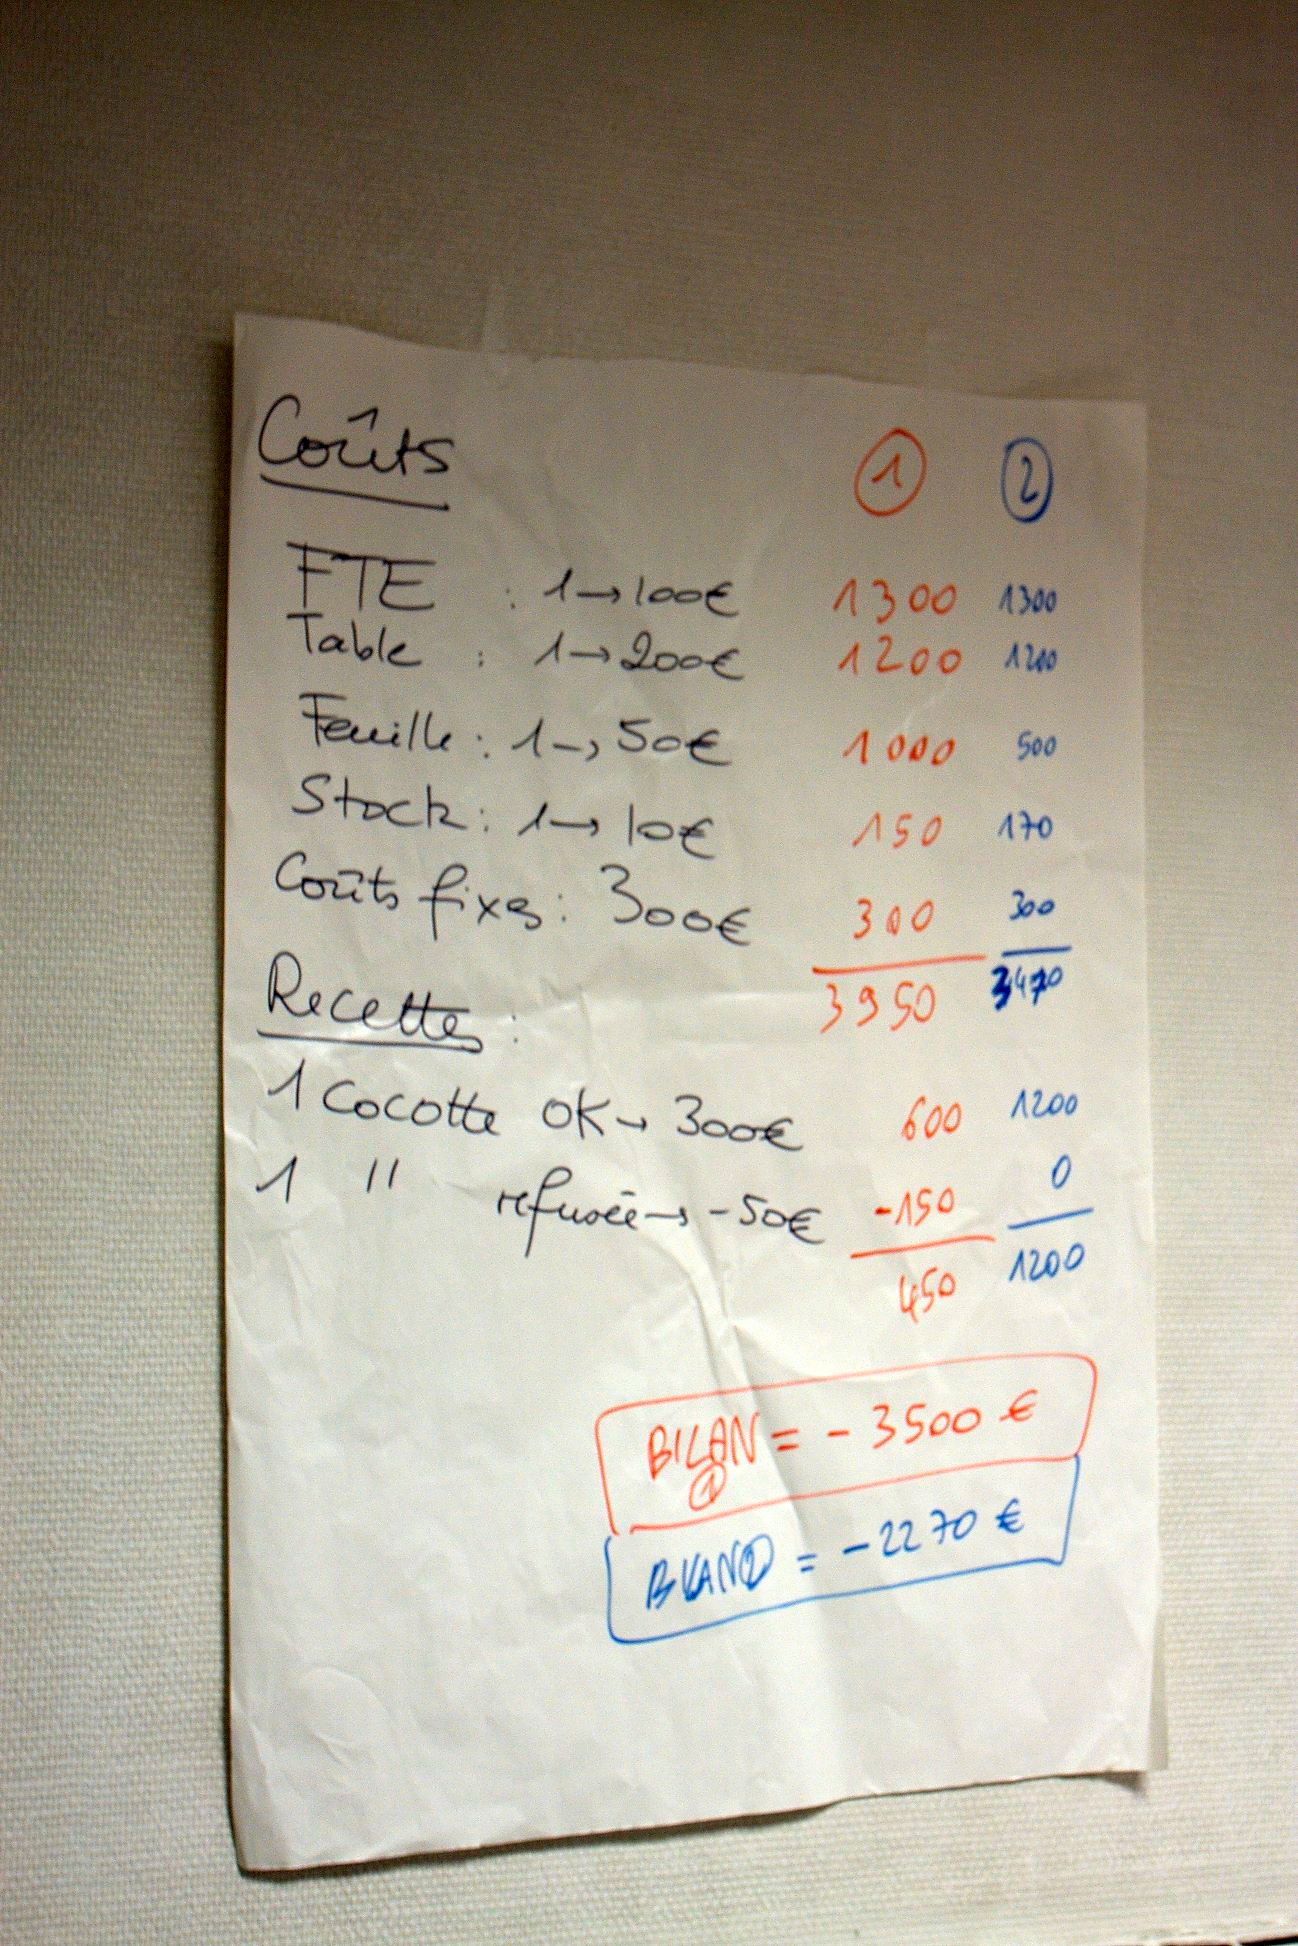 Coûts ① ②
FTE : 1→100€ 1300 1300
Table : 1→200€ 1200 1200
Feuille : 1→50€ 1000 500
Stock : 1→10€ 150 170
Coûts fixes : 300€ 300 300
3950 3470
Recettes :
1 Cocotte OK→300€ 600 1200
1 " refusée→-50€ -150 0
450 1200
BILAN ① = - 3500 €
BILAN② = - 2270 €